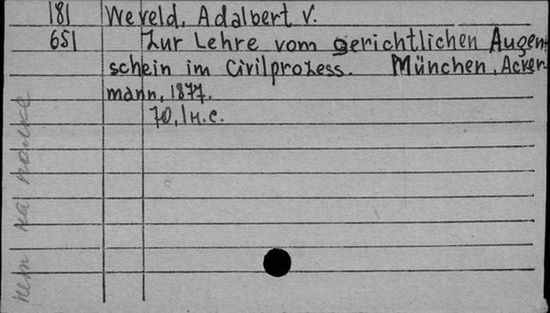 181 Weveld, Adalbert v.
651 Zur Lehre vom gerichtlichen Augen-
schein im Civilprozess. München, Acker-
mann, 1877.
70, 1 н.с.
нет на полке